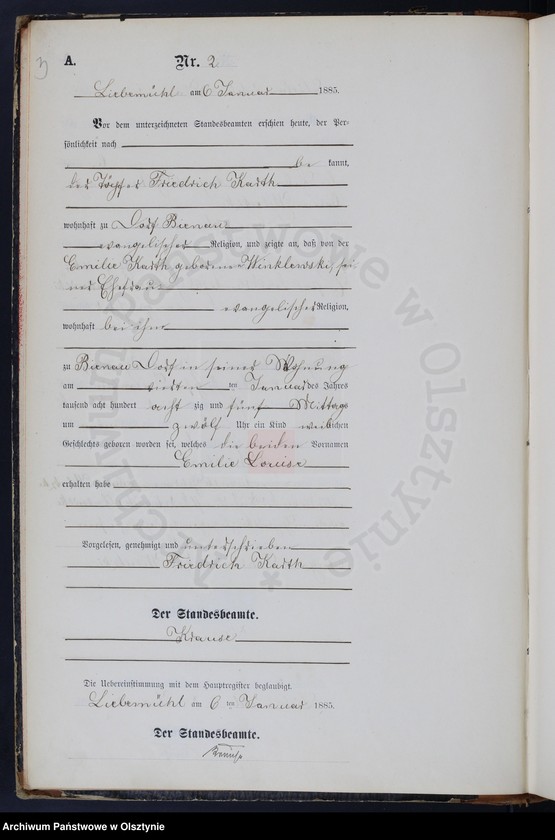 3
A. Nr. 2
Liebemühl am 6 Januar 1885.
Vor dem unterzeichneten Standesbeamten erschien heute, der Per-
sönlichkeit nach
be kannt,
der Töpfer Friedrich Karth
wohnhaft zu Dorf Bienau
evangelischer Religion, und zeigte an, daß von der
Emilie Karth geborene Winklewski, sei
ner Ehefrau
evangelischer Religion,
wohnhaft bei ihm
zu Bienau Dorf in seiner Wohnung
am ten Januar des Jahres
tausend acht hundert acht zig und fünf Mittags
um zwölf Uhr ein Kind weiblichen
Geschlechts geboren worden sei, welches die beiden Vornamen
Emilie Louise
erhalten habe
Vorgelesen, genehmigt und unterschrieben
Friedrich Karth
Der Standesbeamte.
Krause
Die Uebereinstimmung mit dem Hauptregister beglaubigt.
Liebemühl am 6 ten Januar 1885.
Der Standesbeamte.
Krause
Archiwum Państwowe w Olsztynie
Archiwum Państwowe w Olsztynie